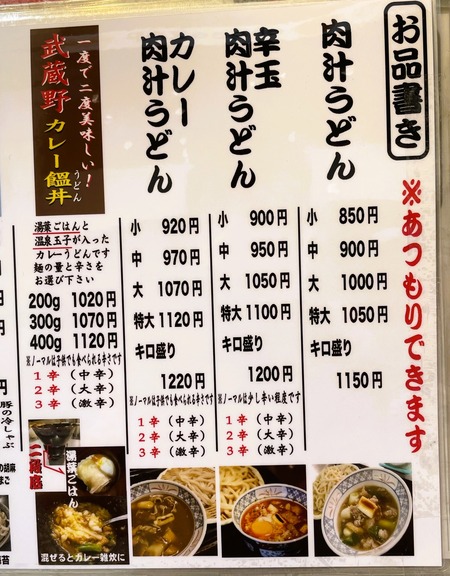 お品書き
※あつもりできます
肉汁うどん
小 850円
中 900円
大 1000円
特大 1050円
キロ盛り
1150円
辛玉
肉汁うどん
小 900円
中 950円
大 1050円
特大 1100円
キロ盛り
1200円
※ノーマルは少し辛い程度です
1辛(中辛)
2辛(大辛)
3辛(激辛)
カレー
肉汁うどん
小 920円
中 970円
大 1070円
特大 1120円
キロ盛り
1220円
※ノーマルは子供でも食べられる辛さです
1辛(中辛)
2辛(大辛)
3辛(激辛)
一度で二度美味しい!
武蔵野カレー饂丼
うどん
湯葉ごはんと
温泉玉子が入った
カレーうどんです
麺の量と辛さを
お選び下さい
200g 1020円
300g 1070円
400g 1120円
※ノーマルは子供でも食べられる辛さです
1辛(中辛)
2辛(大辛)
3辛(激辛)
二段底
湯葉ごはん
混ぜるとカレー雑炊に
豚の冷しゃぶ
の胡麻
まご